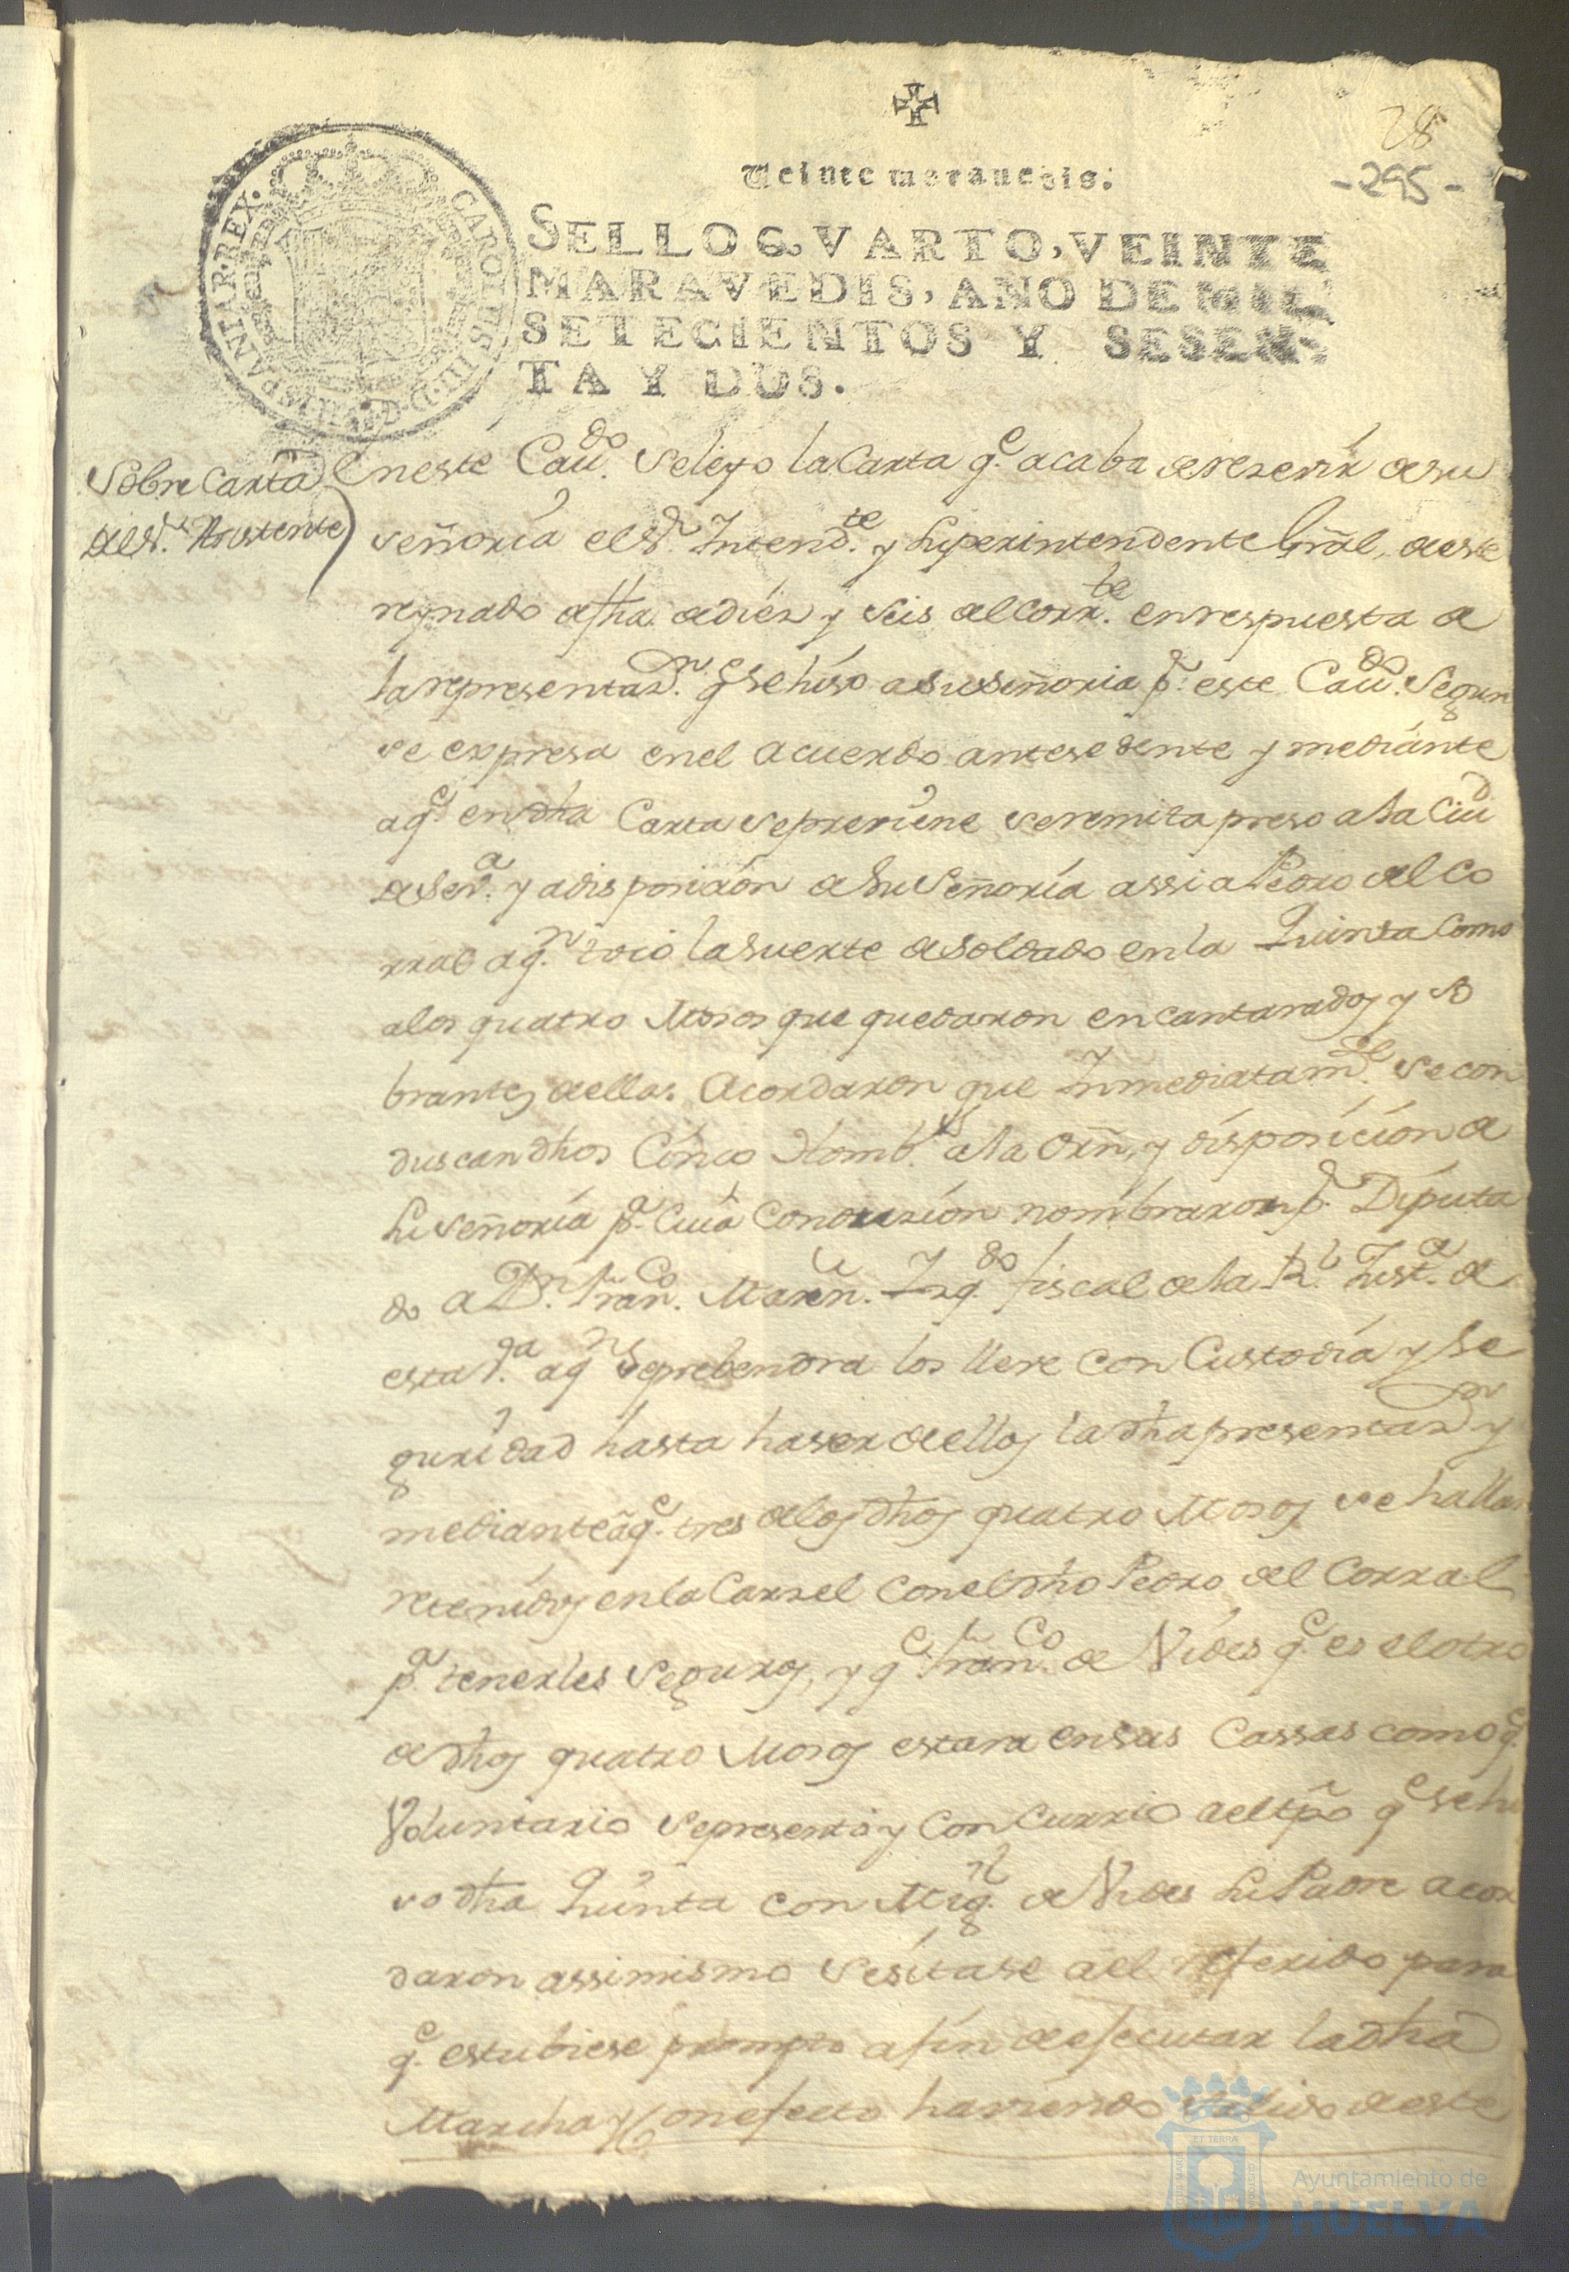 28
-295-
Veinte maravedis.
SELLO QVARTO, VEINTE
MARAVEDIS, AÑO DE MIL
SETECIENTOS Y SESEN-
TA Y DOS.
CAROLUS III D. G. HISPANIAR. REX.
Sobre Carta
del Sr. Asistente
En este Cavdo. se leyo la Carta qe. acaba de resevir de su
señoria el Sr. Intendte. y Superintendente Gral. de este
reynado de fha. de diez y seis del Corrte. en respuesta a
la representazn. qe se hiso a su señoria pr. este Cavdo. segun
se expresa en el acuerdo antesedente y mediante
a qe en dha Carta se previene se remita preso a la Ciud
de Seva. y a disposizion de su Señoria assi a Pedro del Co
rral a qn. toco la suerte de soldado en la Quinta como
a los quatro Mosos que quedaron encantarados y so
brantes de ella. Acordaron que Inmediatamte. se con
duscan dhos Cinco Hombs. a la orn. y disposicion de
su señoria pa. cuia Conduzion nombraron pr. Diputa
do a Dn. Franco. Marn. Izqdo fiscal de la Rl. Justa. de
esta Va. a qn se prebendra los lleve con Custodia y se
guridad hasta haser de ellos la dha presentazn y
mediante a qe. tres de los dhos quatro Mosos se hallan
retenidos en la Carzel con el dho Pedro del Corral
pa. tenerles seguros, y qe Franco. de Vides qe. es el otro
de dhos quatro Mosos estara en sus Cassas como qe.
Voluntario se presento y Concurrio a el tpo qe se hi
so dha Quinta con Migl. de Vides su Padre acor
daron assimismo se sitase a el referido para
qe. estubiese prompto a fin de efecutar la dha
Marcha y Con efecto haviendo salido de este
ET TERRÆ
Ayuntamiento de
HUELVA